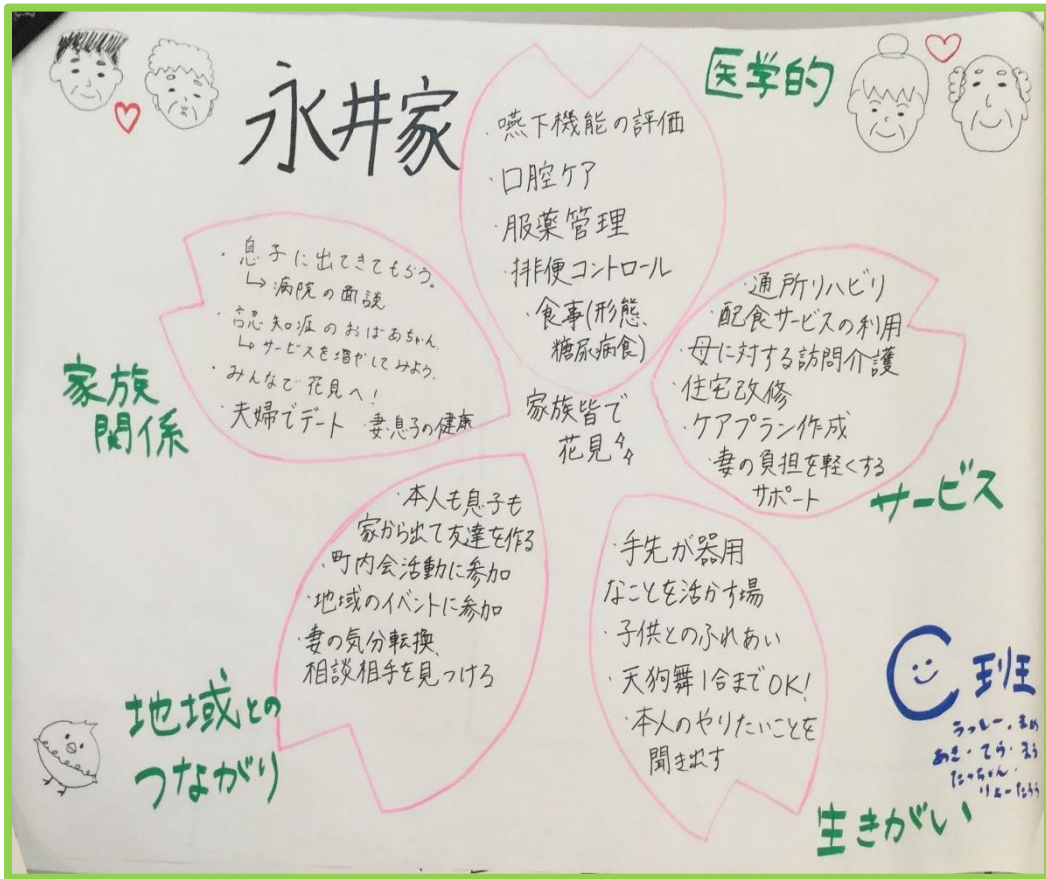 永井家
医学的
・嚥下機能の評価
・口腔ケア
・服薬管理
・排便コントロール
・食事(形態、
糖尿病食)
家族関係
・息子に出てきてもらう。
↳病院の面談
・認知症のおばあちゃん
↳サービスを増やしてみよう。
・みんなで花見へ!
・夫婦でデート ・妻、息子の健康
家族皆で
花見
サービス
・通所リハビリ
・配食サービスの利用
・母に対する訪問介護
・住宅改修
・ケアプラン作成
・妻の負担を軽くする
サポート
地域との
つながり
・本人も息子も
家から出て友達を作る
・町内会活動に参加
・地域のイベントに参加
・妻の気分転換、
相談相手を見つける
生きがい
・手先が器用
なことを活かす場
・子供とのふれあい
・天狗舞1合までOK!
・本人のやりたいことを
聞き出す
C班